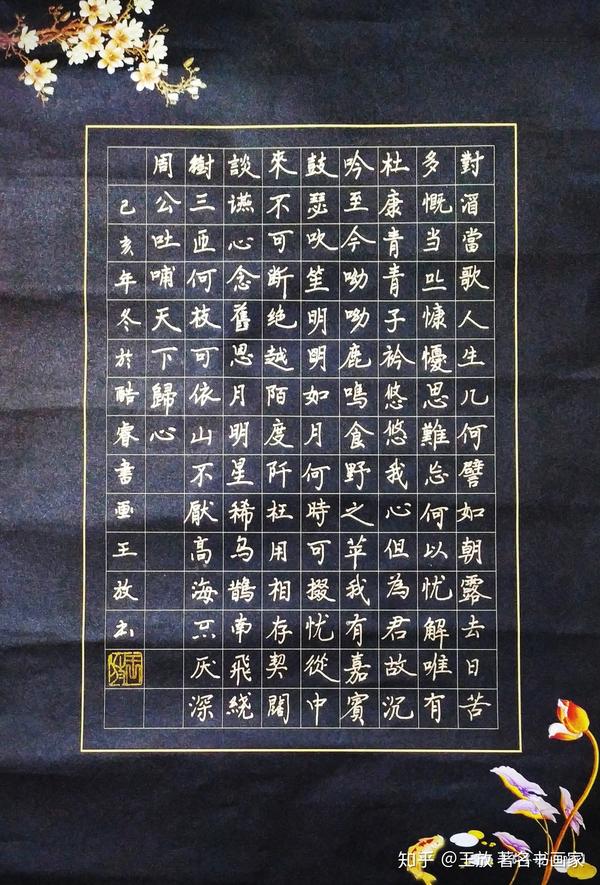 對酒當歌人生几何譬如朝露去日苦
多慨当以慷憂思難忘何以忧解唯有
杜康青青子衿悠悠我心但為君故沉
吟至今呦呦鹿鳴食野之苹我有嘉賓
鼓瑟吹笙明明如月何時可掇忧從中
來不可断绝越陌度阡枉用相存契闊
談讌心念舊恩月明星稀乌鵲南飛绕
樹三匝何枝可依山不厭高海不厌深
周公吐哺天下歸心
己亥年冬於酷睿書画王放书
知乎 @王放 著名书画家